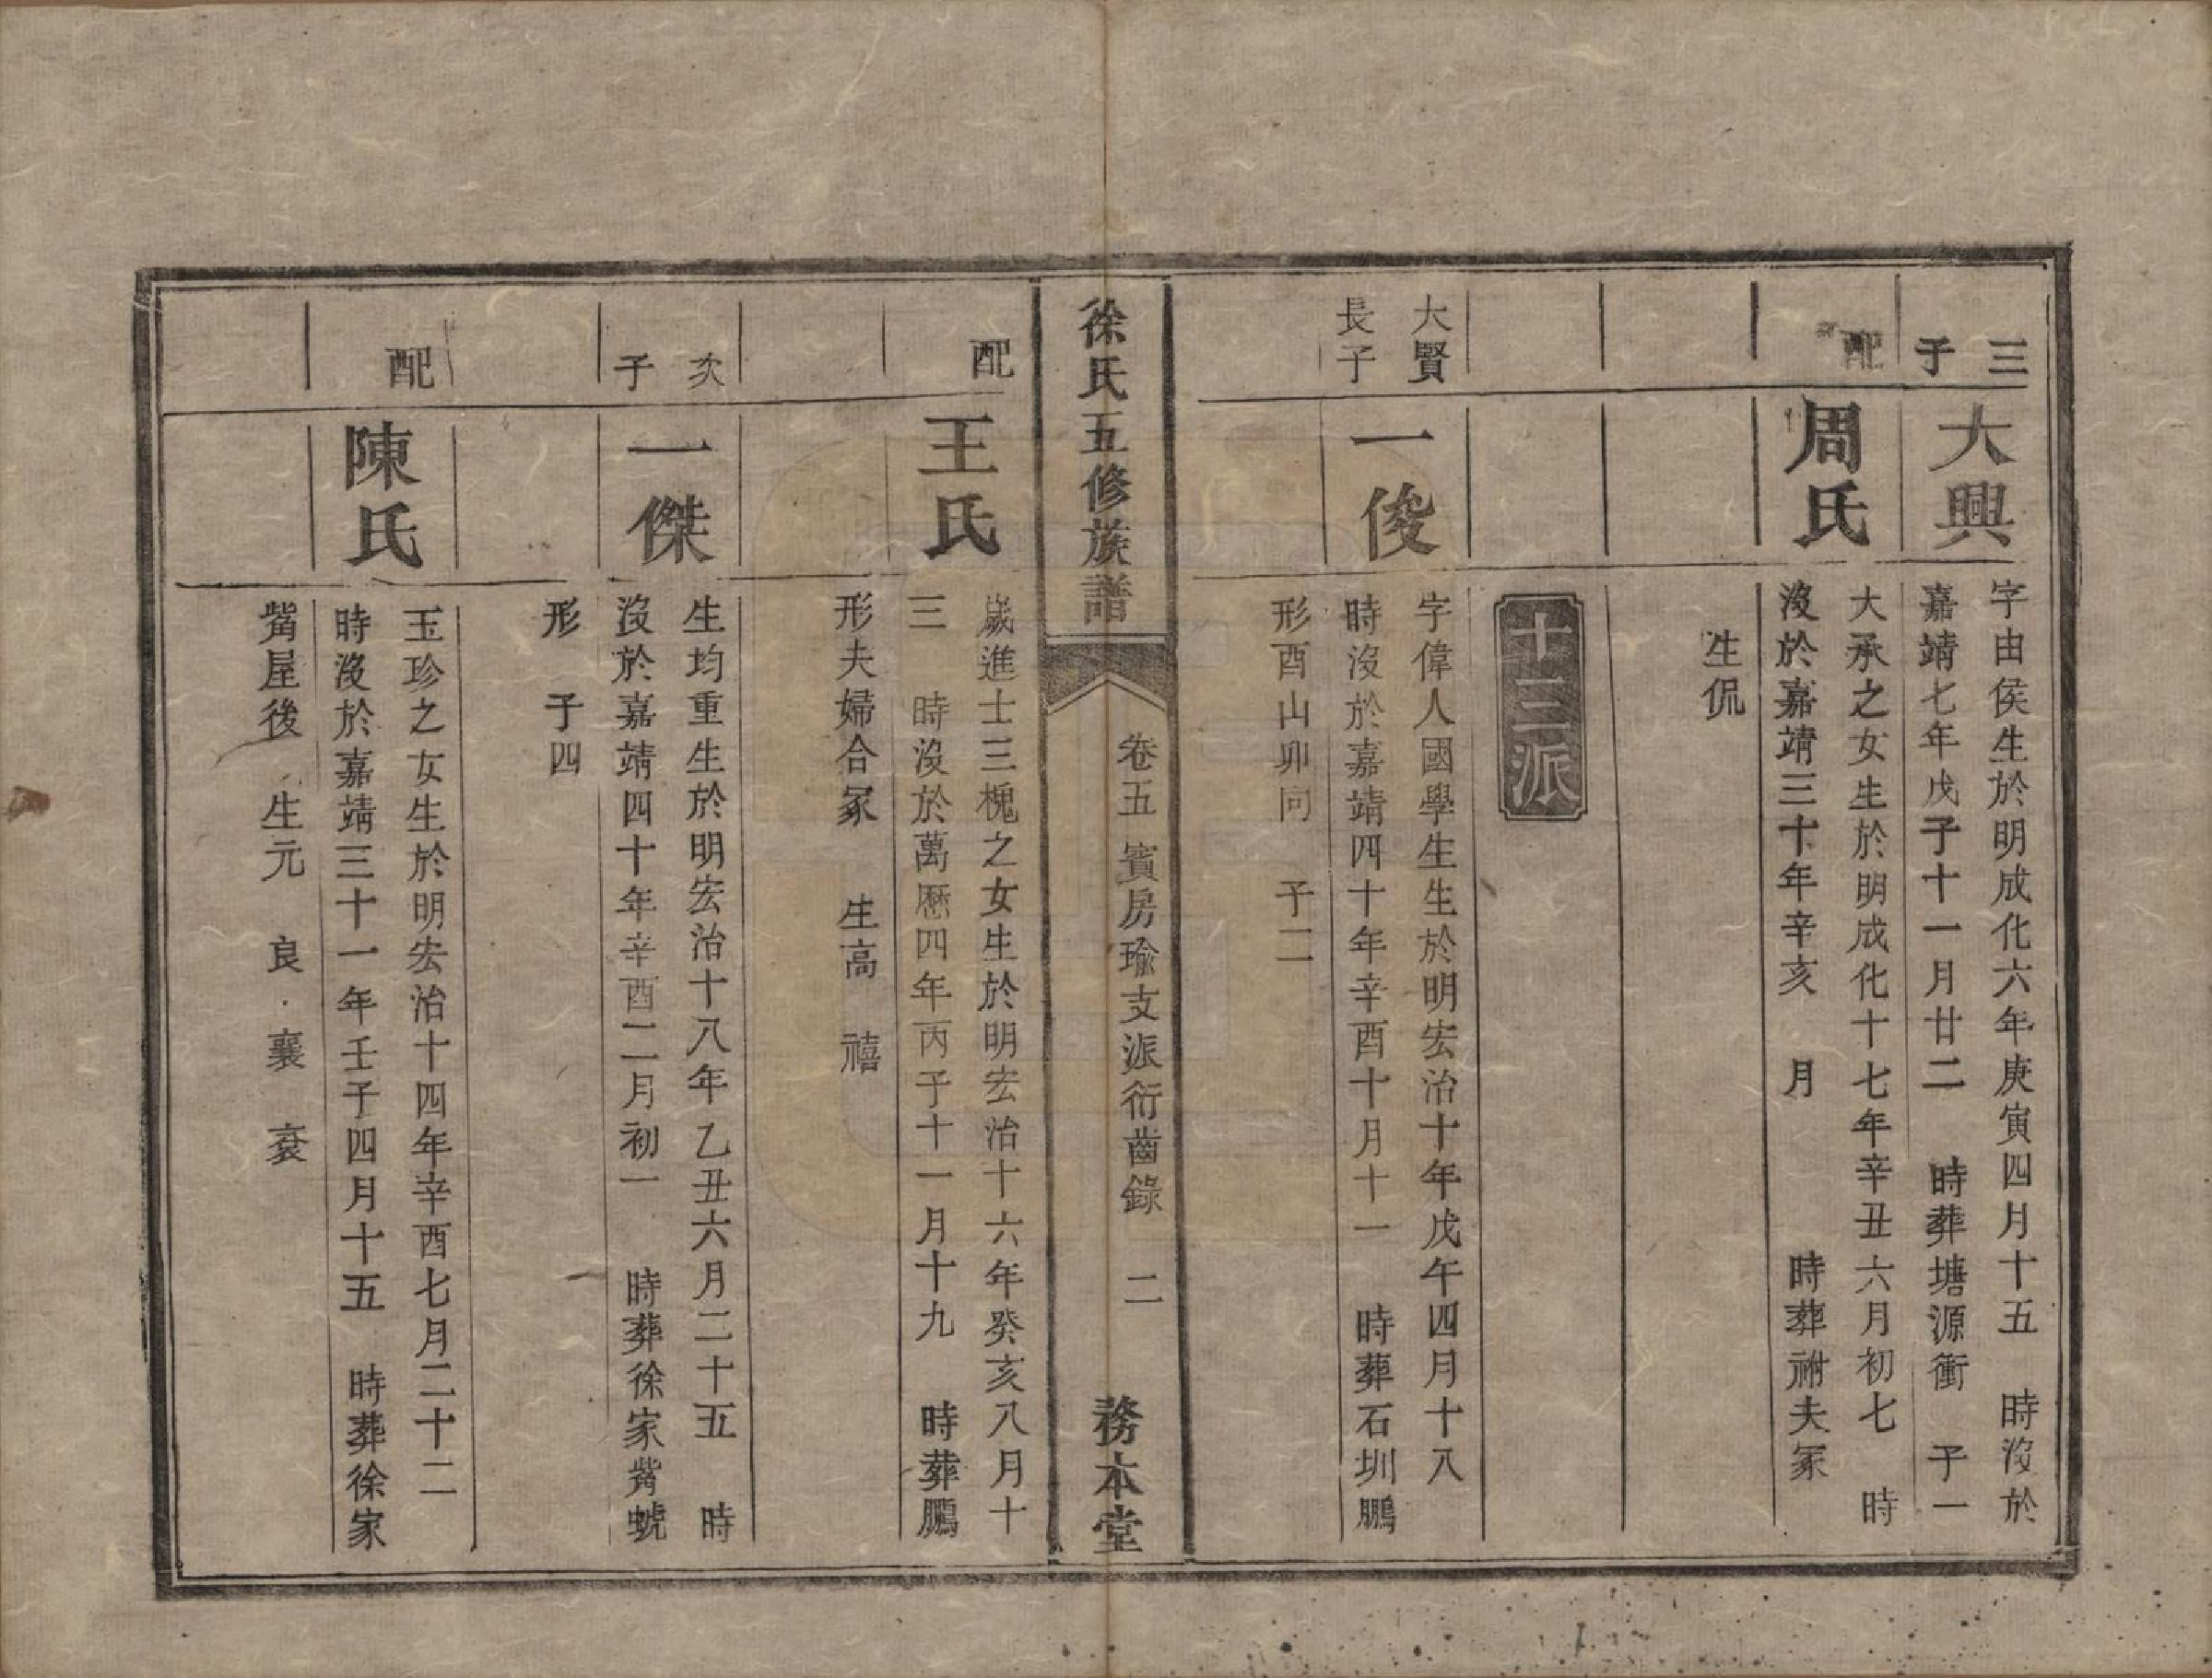 三子
大興
字由侯生於明成化六年庚寅四月十五　時沒於
嘉靖七年戊子十一月廿二　時葬塘源衝　子一
配
周氏
大承之女生於明成化十七年辛丑六月初七　時
沒於嘉靖三十年辛亥　月　　　時葬祔夫冢
生侃
十三派
大賢
長子
一俊
字偉人國學生生於明宏治十年戊午四月十八
時沒於嘉靖四十年辛酉十月十一　時葬石圳鵬
形酉山卯向　子二
徐氏五修族譜
卷五　賓房瑜支派衍齒錄　二
務本堂
配
王氏
歲進士三槐之女生於明宏治十六年癸亥八月十
三　時沒於萬歷四年丙子十一月十九　時葬鵬
形夫婦合冢　生高　禧
次子
一傑
生均重生於明宏治十八年乙丑六月二十五　時
沒於嘉靖四十年辛酉二月初一　時葬徐家觜虢
形　子四
配
陳氏
玉珍之女生於明宏治十四年辛酉七月二十二
時沒於嘉靖三十一年壬子四月十五　時葬徐家
觜屋後　生元　良　襄　袞